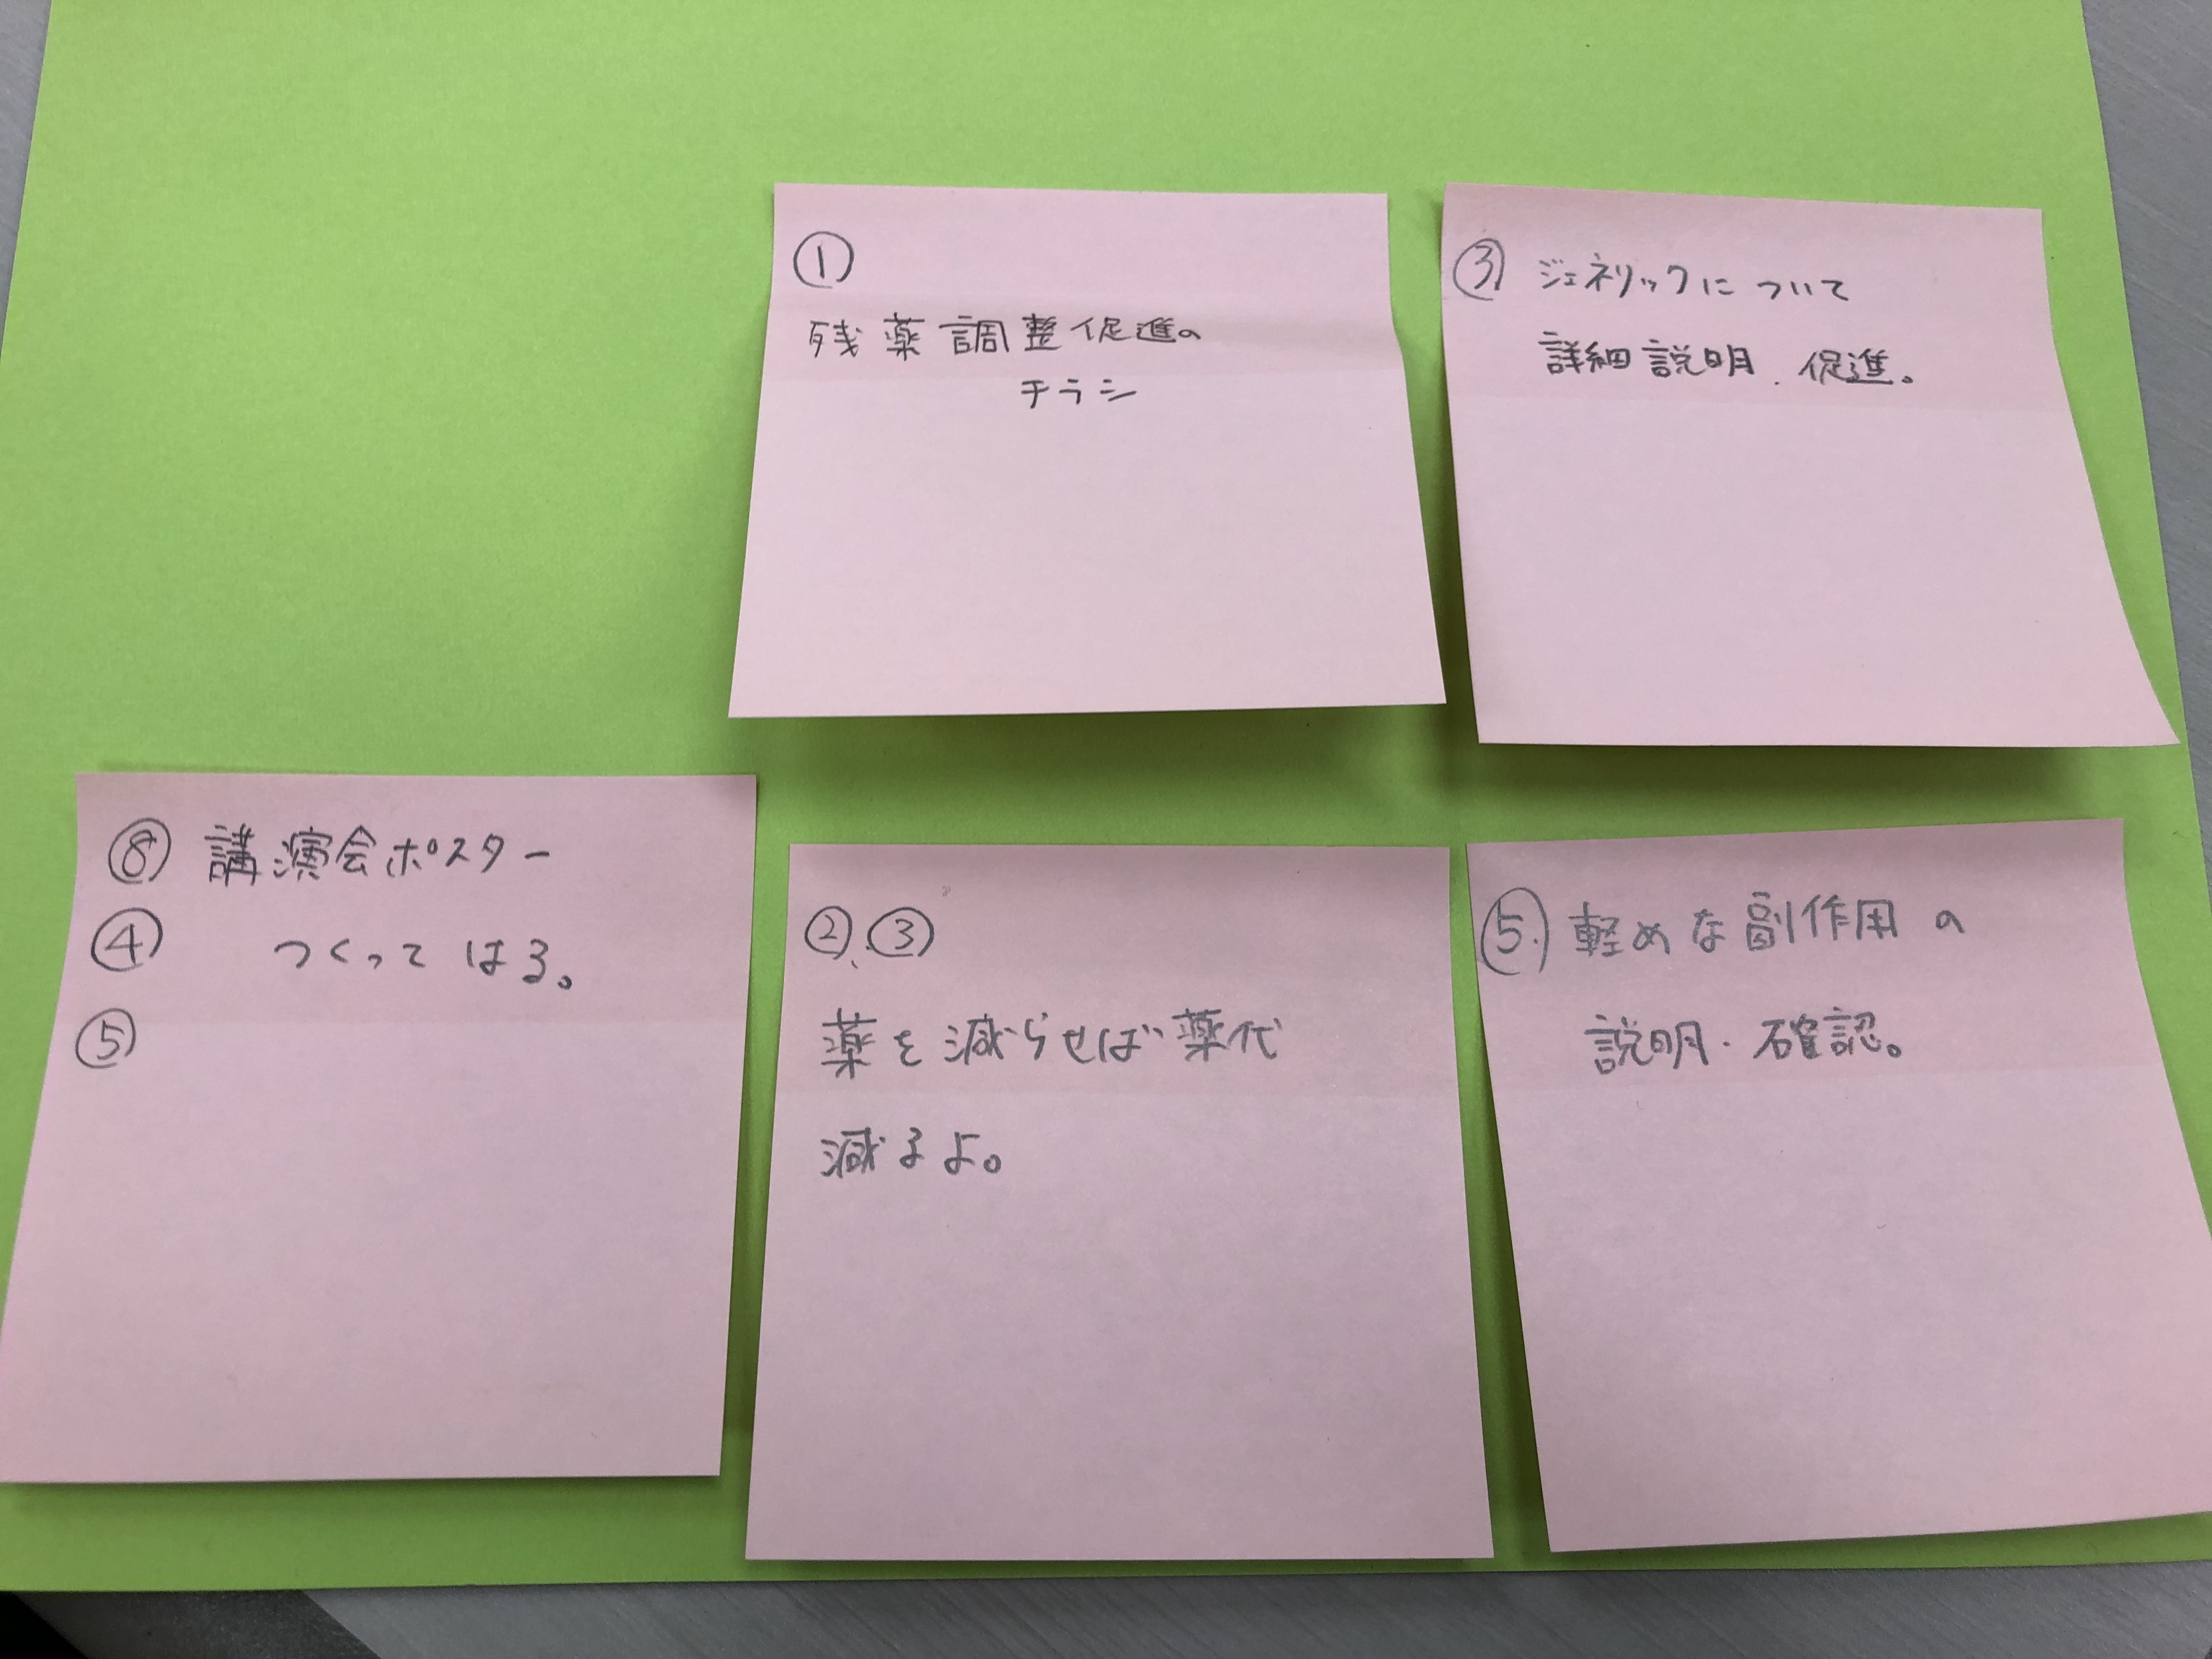 ①
残薬調整促進の
チラシ
③ ジェネリックについて
詳細説明.促進。
⑧ 講演会ポスター
④ つくってはる。
⑤
②、③
薬を減らせば薬代
減るよ。
⑤. 軽めな副作用の
説明・確認。